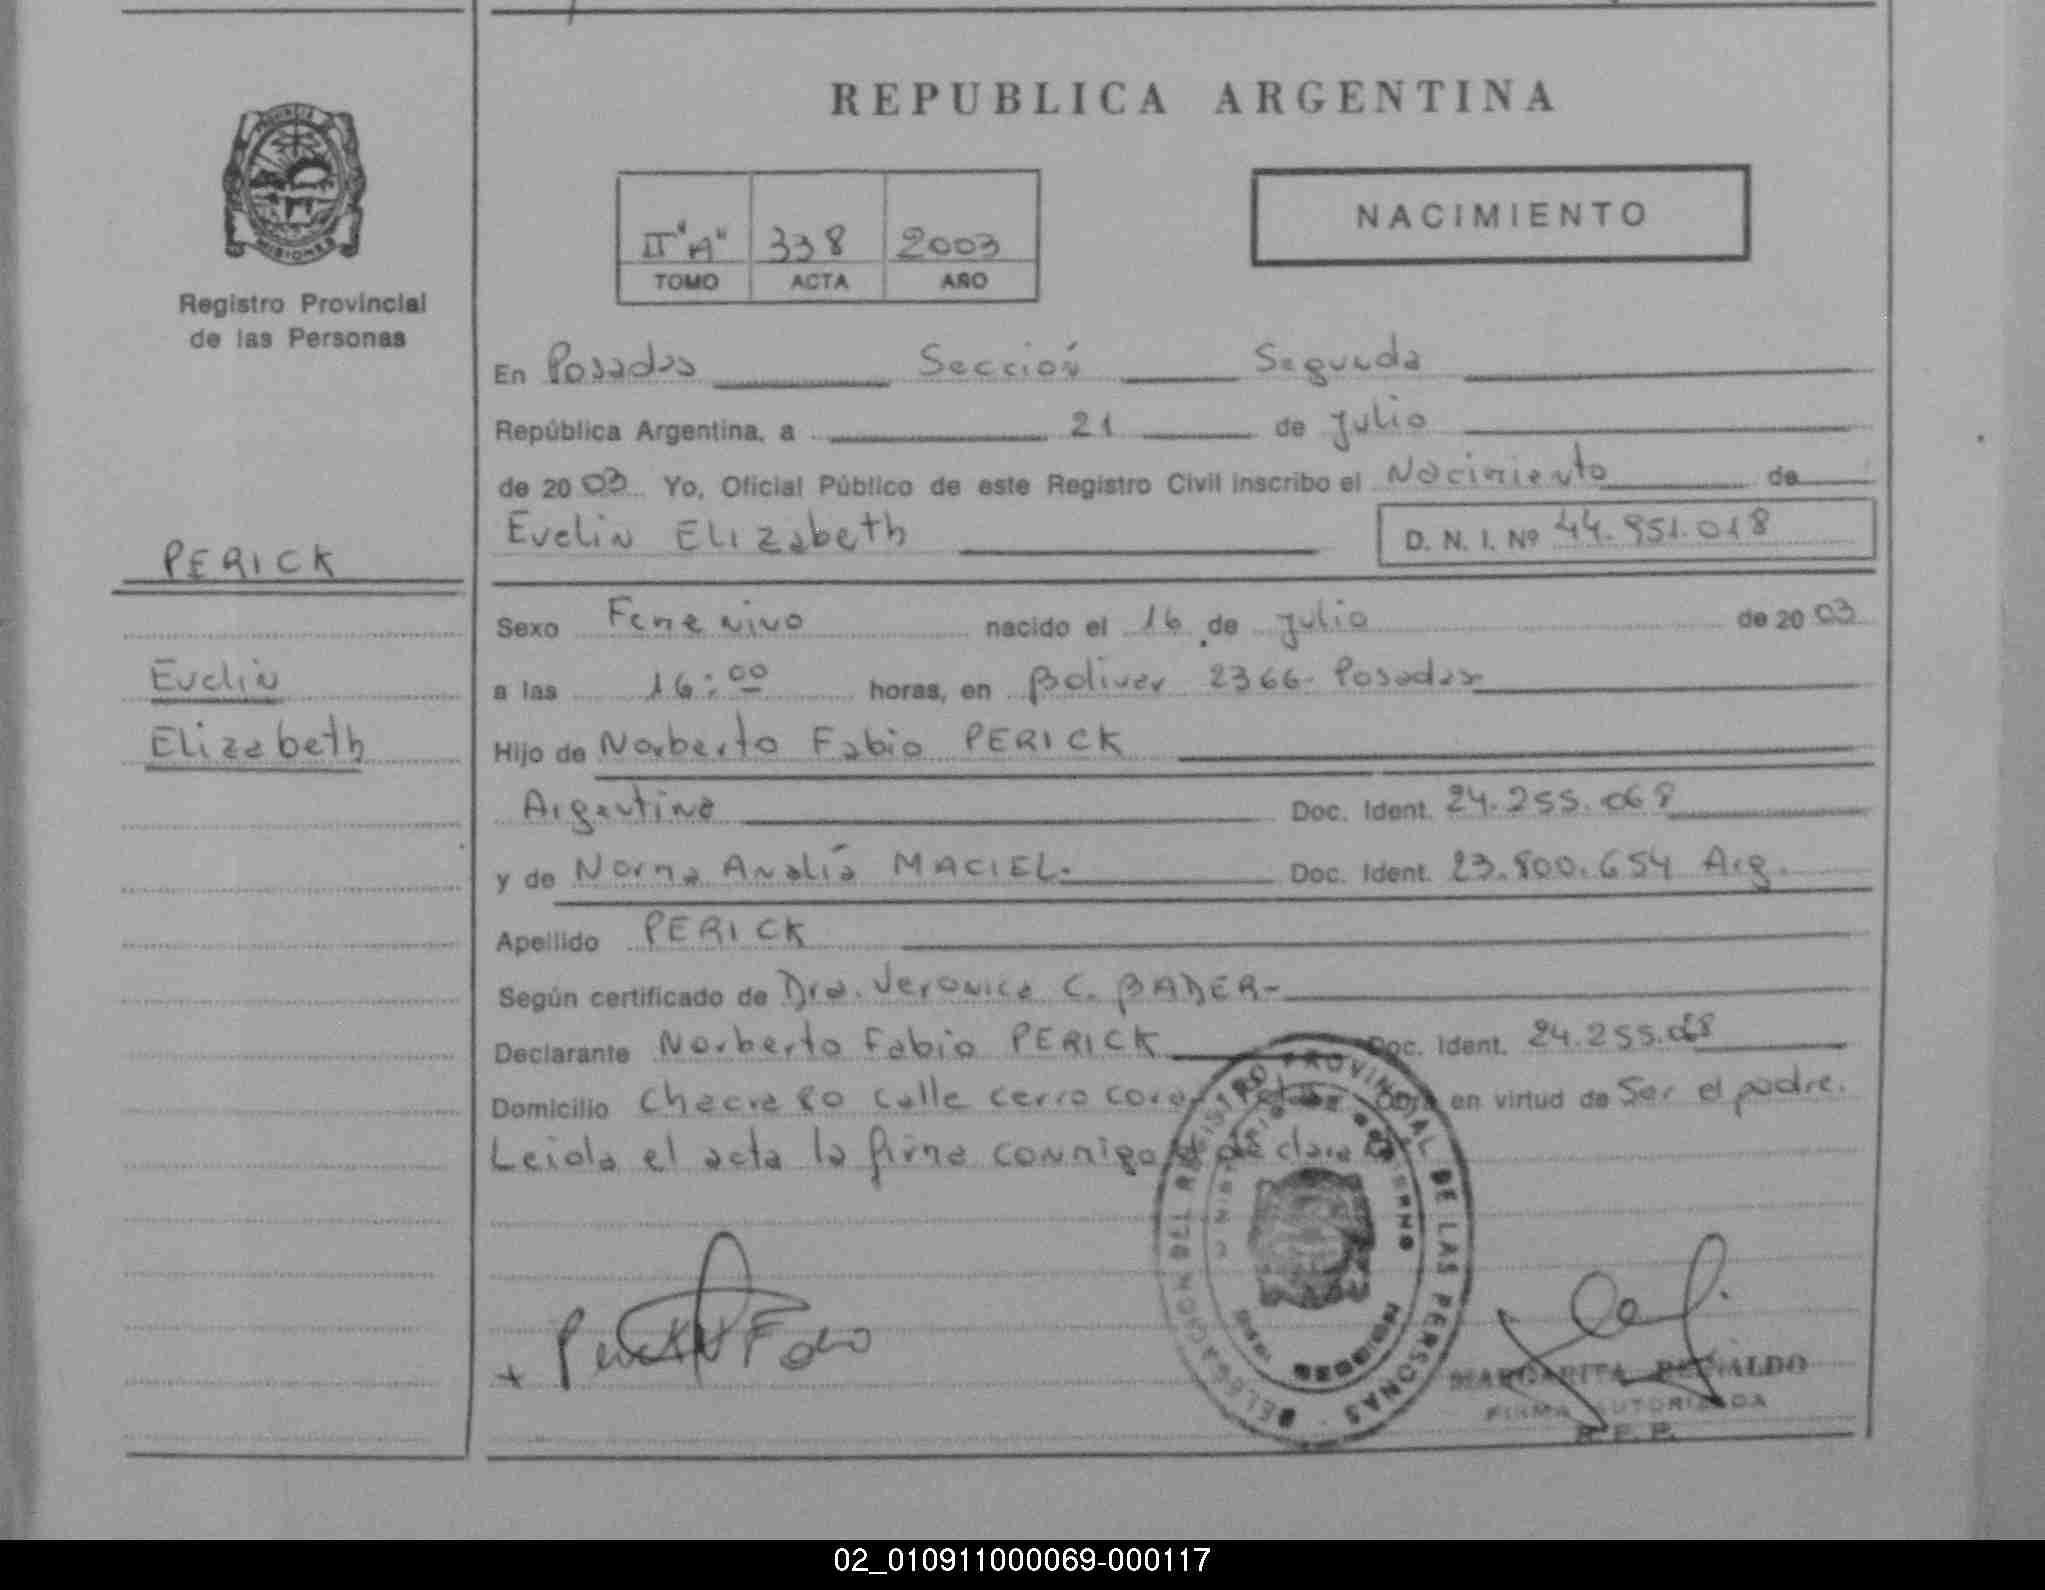 REPUBLICA ARGENTINA
PROVINCIA DE
MISIONES
Registro Provincial
de las Personas
II "A" 338 2003
TOMO ACTA AÑO
NACIMIENTO
En Posadas Sección Segunda
República Argentina, a 21 de julio
de 2003 Yo, Oficial Público de este Registro Civil inscribo el Nacimiento de
Evelin Elizabeth D. N. I. Nº 44.951.018
PERICK
Evelin
Elizabeth
Sexo Femenino nacido el 16 de julio de 2003
a las 16:00 horas, en Bolivar 2366- Posadas
Hijo de Norberto Fabio PERICK
Argentino Doc. Ident. 24.255.068
y de Norma Analía MACIEL. Doc. Ident. 23.800.654 Arg.
Apellido PERICK
Según certificado de Dra. Veronica C. BADER-
Declarante Norberto Fabio PERICK Doc. Ident. 24.255.068
Domicilio Chacra 80 calle cerro Obra en virtud de Ser el padre.
Leida el acta la firma conmigo el declarante
DELEGACION DEL REGISTRO PROVINCIAL DE LAS PERSONAS
MINISTERIO DE GOBIERNO
MISIONES
Perick N Fabio
MARGARITA REINALDO
FIRMA AUTORIZADA
R. P. P.
02_010911000069-000117